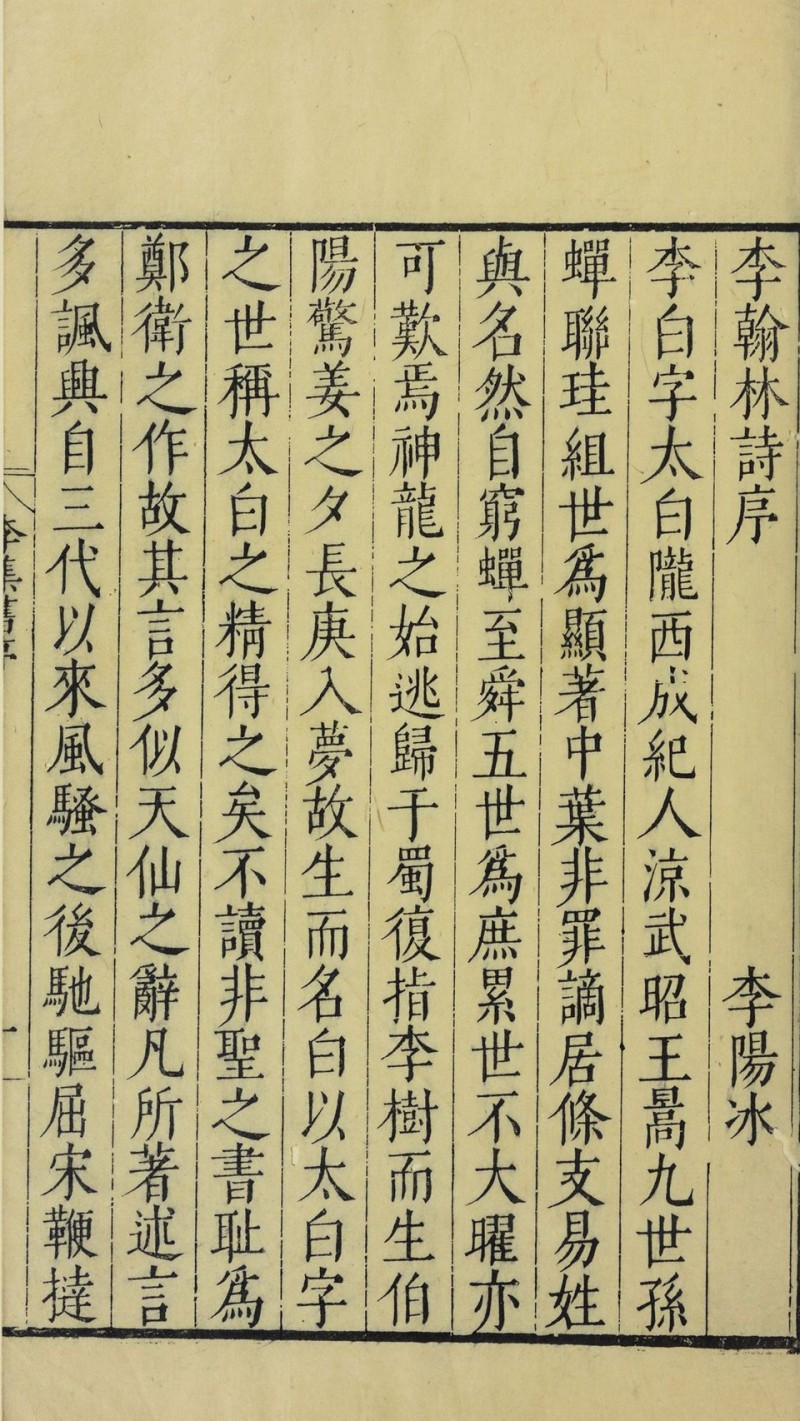 李翰林詩序 李陽冰
李白字太白隴西成紀人涼武昭王暠九世孫
蟬聯珪組世爲顯著中葉非罪謫居條支易姓
與名然自窮蟬至舜五世爲庶累世不大曜亦
可歎焉神龍之始逃歸于蜀復指李樹而生伯
陽驚姜之夕長庚入夢故生而名白以太白字
之世稱太白之精得之矣不讀非聖之書耻爲
鄭衛之作故其言多似天仙之辭凡所著述言
多諷興自三代以來風騷之後馳驅屈宋鞭撻
李集舊序
一